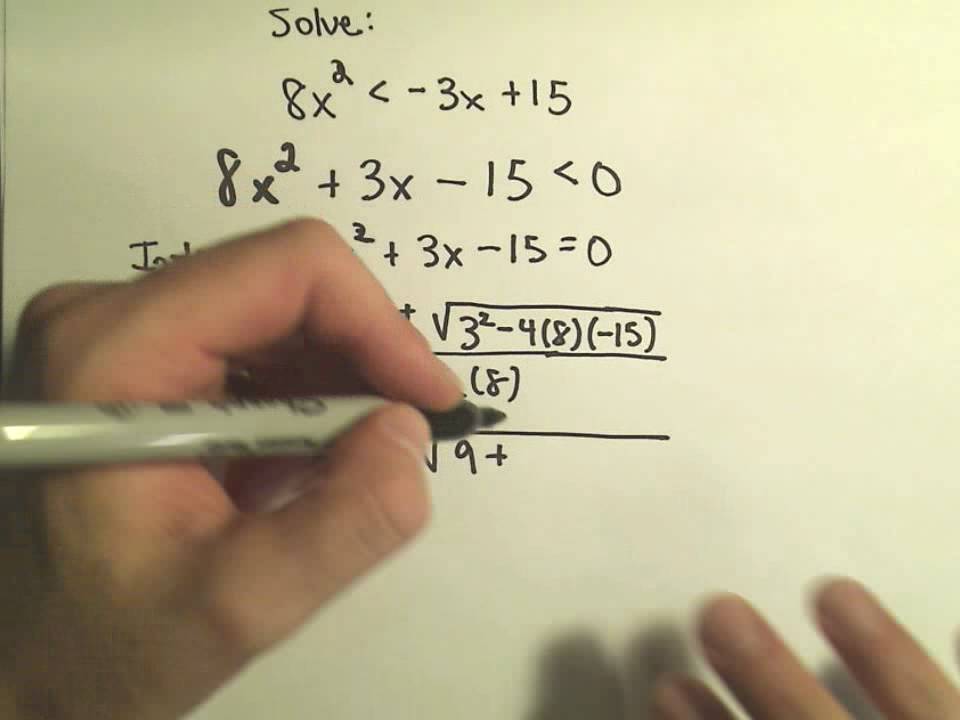 Solve:
8x² < -3x + 15
8x² + 3x - 15 < 0
² + 3x - 15 = 0
√3² - 4(8)(-15)
(8)
√9 +